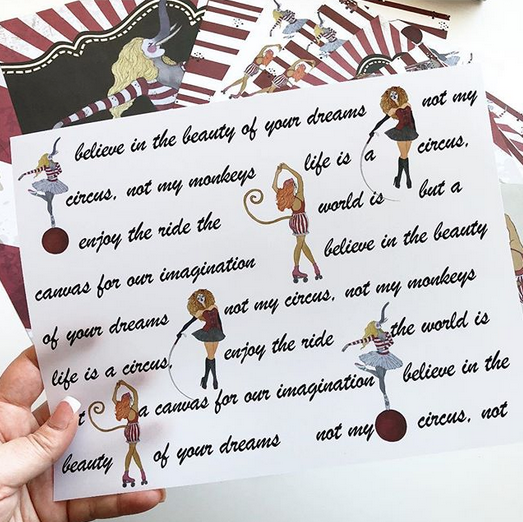 believe in the beauty of your dreams not my
circus, not my monkeys life is a circus,
enjoy the ride the world is but a
canvas for our imagination believe in the beauty
of your dreams not my circus, not my monkeys
life is a circus, enjoy the ride the world is
a canvas for our imagination believe in the
beauty of your dreams not my circus, not